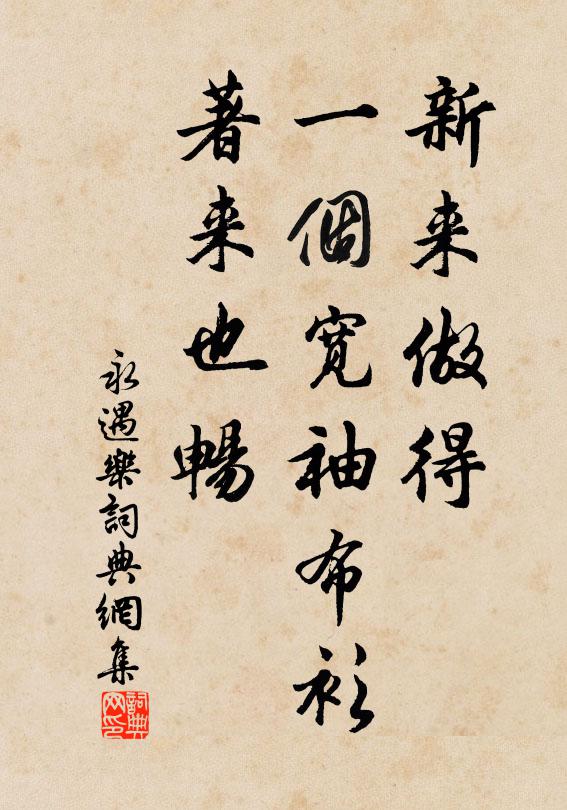 新来做得
一個寬袖布衫
著来也暢
永遇樂詞典網集
詞典網印